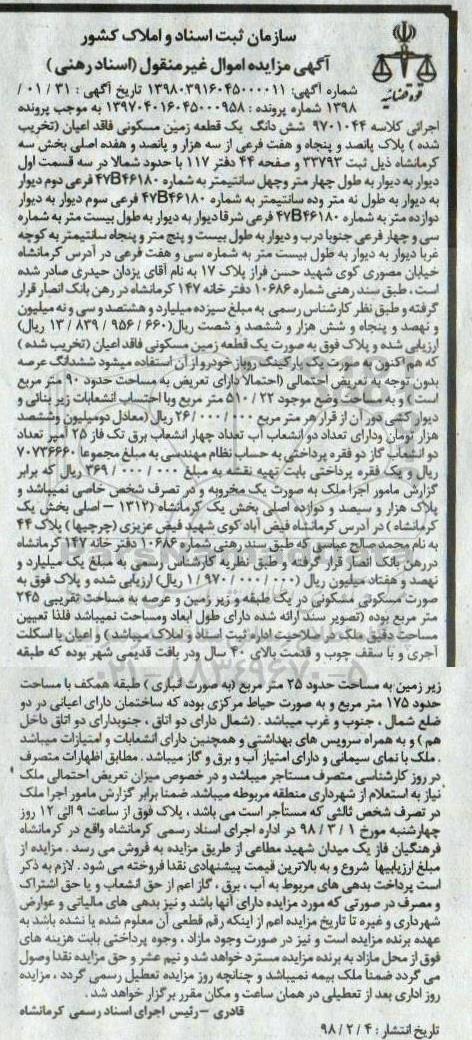 سازمان ثبت اسناد و املاک کشور
آگهی مزایده اموال غیرمنقول (اسناد رهنی)
قوه قضائیه
شماره آگهی: ۱۳۹۸۰۳۹۱۶۰۴۵۰۰۰۰۱۱ تاریخ آگهی: ۳۱/ ۰۱ /
۱۳۹۸ شماره پرونده: ۱۳۹۷۰۴۰۱۶۰۴۵۰۰۰۹۵۸ به موجب پرونده
اجرائی کلاسه ۹۷۰۱۰۴۴ شش دانگ یک قطعه زمین مسکونی فاقد اعیان (تخریب
شده) پلاک پانصد و پنجاه و هفت فرعی از سه هزار و پانصد و هفده اصلی بخش سه
کرمانشاه ذیل ثبت ۳۳۷۹۳ و صفحه ۴۴ دفتر ۱۱۷ با حدود شمالا در سه قسمت اول
دیوار به دیوار به طول چهار متر وچهل سانتیمتر به شماره ۴۷B۴۶۱۸۰ فرعی دوم دیوار
به دیوار به طول نه متر وده سانتیمتر به شماره ۴۷B۴۶۱۸۰ فرعی سوم دیوار به دیوار
دوازده متر به شماره ۴۷B۴۶۱۸۰ فرعی شرقا دیوار به دیوار به طول بیست متر به شماره
سی و چهار فرعی جنوبا درب و دیوار به طول بیست و پنج متر و پنجاه سانتیمتر به کوچه
غربا دیوار به دیوار به طول بیست متر به شماره سی و هفت فرعی در آدرس کرمانشاه
خیابان مصوری کوی شهید حسن فراز پلاک ۱۷ به نام آقای یزدان حیدری صادر شده
است، طبق سند رهنی شماره ۱۰۶۸۶ دفتر خانه ۱۴۷ کرمانشاه در رهن بانک انصار قرار
گرفته و طبق نظر کارشناس رسمی به مبلغ سیزده میلیارد و هشتصد و سی و نه میلیون
و نهصد و پنجاه و شش هزار و ششصد و شصت ریال (۶۶۰/ ۹۵۶/ ۸۳۹/ ۱۳ ریال)
ارزیابی شده و پلاک فوق به صورت یک قطعه زمین مسکونی فاقد اعیان (تخریب شده)
که هم اکنون به صورت یک پارکینگ روباز خودرو از آن استفاده میشود ششدانگ عرصه
بدون توجه به تعریض احتمالی (احتمالا دارای تعریض به مساحت حدود ۹۰ متر مربع
است) و به مساحت وضع موجود ۲۲/ ۵۱۰ متر مربع وبا احتساب انشعابات زیر بنائی و
دیوار کشی دور آن از قرار هر متر مربع ۰۰۰/ ۰۰۰/ ۲۶ ریال (معادل دومیلیون وششصد
هزار تومان ودارای تعداد دو انشعاب آب تعداد چهار انشعاب برق تک فاز ۲۵ آمپر تعداد
دو انشعاب گاز دو فقره پرداختی به حساب نظام مهندسی به مبلغ مجموعا ۷۰۷۳۶۶۶۰
ریال و یک فقره پرداختی بابت تهیه نقشه به مبلغ ۰۰۰/ ۰۰۰/ ۳۶۹ ریال که برابر
گزارش مامور اجرا ملک به صورت یک مخروبه و در تصرف شخص خاصی نمیباشد و
پلاک هزار و سیصد و دوازده اصلی بخش یک کرمانشاه (۱۳۱۲ – اصلی بخش یک
کرمانشاه) در آدرس کرمانشاه فیض آباد کوی شهید فیض عزیزی (چرچیها) پلاک ۴۴
به نام محمد صالح عباسی که طبق سند رهنی شماره ۱۰۶۸۶ دفتر خانه ۱۴۷ کرمانشاه
دررهن بانک انصار قرار گرفته و طبق نظریه کارشناس رسمی به مبلغ یک میلیارد و
نهصد و هفتاد میلیون ریال (۰۰۰/ ۰۰۰/ ۹۷۰/ ۱ ریال) ارزیابی شده و پلاک فوق به
صورت مسکونی مشکونی در یک طبقه و زیر زمین و عرصه به مساحت تقریبی ۲۴۵
متر مربع بوده (تصویر سند ارائه شده دارای طول ابعاد ومساحت نمیباشد فلذا تعیین
مساحت دقیق ملک در صلاحیت اداره ثبت اسناد و املاک میباشد) و اعیان با اسکلت
آجری و با سقف چوب و قدمت بالای ۴۰ سال ودر بافت قدیمی شهر بوده که طبقه
زیر زمین به مساحت حدود ۲۵ متر مربع (به صورت انباری) طبقه همکف با مساحت
حدود ۱۷۵ متر مربع و به صورت حیاط مرکزی بوده که ساختمان دارای اعیانی در دو
ضلع شمال، جنوب و غرب میباشد. (شمال دارای دو اتاق، جنوبدارای دو اتاق داخل
هم) و به همراه سرویس های بهداشتی و همچنین دارای انشعابات و امتیازات میباشد
. ملک با نمای سیمانی و دارای امتیاز آب و برق و گاز میباشد. مطابق اظهارات متصرف
در روز کارشناسی متصرف مستاجر میباشد و در خصوص میزان تعریض احتمالی ملک
نیاز به استعلام از شهرداری منطقه مربوطه میباشد. ضمنا برابر گزارش مامور اجرا ملک
در تصرف شخص ثالثی که مستأجر است می باشد، پلاک فوق از ساعت ۹ الی ۱۲ روز
چهارشنبه مورخ ۱/ ۳/ ۹۸ در اداره اجرای اسناد رسمی کرمانشاه واقع در کرمانشاه
فرهنگیان فاز یک میدان شهید مطاعی از طریق مزایده به فروش می رسد. مزایده از
مبلغ ارزیابیها شروع و به بالاترین قیمت پیشنهادی نقدا فروخته می شود. لازم به ذکر
است پرداخت بدهی های مربوط به آب، برق، گاز اعم از حق انشعاب و یا حق اشتراک
و مصرف در صورتی که مورد مزایده دارای آنها باشد و نیز بدهی های مالیاتی و عوارض
شهرداری و غیره تا تاریخ مزایده اعم از اینکه رقم قطعی آن معلوم شده یا نشده باشد به
عهده برنده مزایده است و نیز در صورت وجود مازاد، وجوه پرداختی بابت هزینه های
فوق از محل مازاد به برنده مزایده مسترد خواهد شد و نیم عشر و حق مزایده نقدا وصول
می گردد ضمنا ملک بیمه نمیباشد و چنانچه روز مزایده تعطیل رسمی گردد، مزایده
روز اداری بعد از تعطیلی در همان ساعت و مکان مقرر برگزار خواهد شد.
قادری – رئیس اجرای اسناد رسمی کرمانشاه
تاریخ انتشار: ۴/ ۲/ ۹۸
ParsNamadData
۰۲۱-۸۸۳۴۹۶۷۰-۵